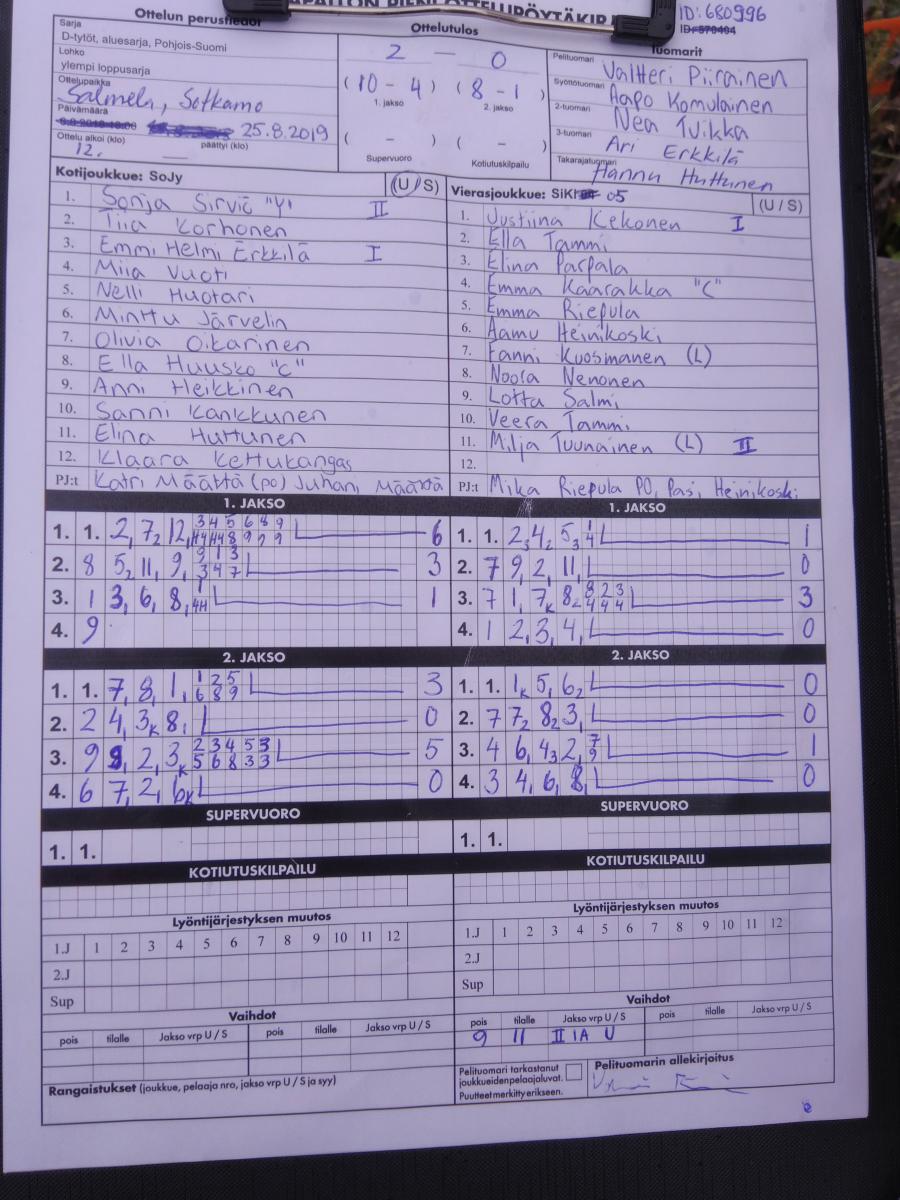 ID: 680996
Ottelun perustiedot
Sarja
D-tytöt, aluesarja, Pohjois-Suomi
Lohko
ylempi loppusarja
Ottelupaikka
Salmela, Sotkamo
Päivämäärä
25.8.2019
Ottelu alkoi (klo) päättyi (klo)
12.
Ottelutulos
2 — 0
(10 - 4) (8 - 1)
1. jakso 2. jakso
( - ) ( - )
Supervuoro Kotiutuskilpailu
Tuomarit
Pelituomari Valtteri Piirainen
Syöttötuomari Aapo Komulainen
2-tuomari Nea Tuikka
3-tuomari Ari Erkkilä
Takarajatuomari Hannu Huttunen
Kotijoukkue: SoJy (U / S)
1. Sonja Sirviö "Y" II
2. Tiia Korhonen
3. Emmi Helmi Erkkilä I
4. Miia Vuoti
5. Nelli Huotari
6. Minttu Järvelin
7. Olivia Oikarinen
8. Ella Huusko "C"
9. Anni Heikkinen
10. Sanni Kankkunen
11. Elina Huttunen
12. Klaara Kettukangas
PJ:t Katri Määttä (po) Juhani Määttä
Vierasjoukkue: 05 (U / S)
1. Justiina Kekonen I
2. Ella Tammi
3. Elina Parpala
4. Emma Kaarakka "C"
5. Emma Riepula
6. Aamu Heinikoski
7. Fanni Kuosmanen (L)
8. Noora Nenonen
9. Lotta Salmi
10. Veera Tammi
11. Milja Tuunainen (L) II
12.
PJ:t Mika Riepula PO, Pasi Heinikoski
1. JAKSO
1. 1. 2, 7, 12, 6
2. 8 5, 11, 9, 3
3. 1 3, 6, 8, 1
4. 9
1. JAKSO
1. 1. 2, 4, 5, 1
2. 7 9, 2, 11, 0
3. 7 1, 7, 8, 3
4. 1 2, 3, 4, 0
2. JAKSO
1. 1. 7, 8, 1, 3
2. 2 4, 3K 8, 0
3. 9 2, 3, 5
4. 6 7, 2, 6K 0
2. JAKSO
1. 1. 1K 5, 6, 0
2. 7 7, 8, 3, 0
3. 4 6, 4, 2, 1
4. 3 4, 6, 8, 0
SUPERVUORO
1. 1.
SUPERVUORO
1. 1.
KOTIUTUSKILPAILU
KOTIUTUSKILPAILU
Lyöntijärjestyksen muutos
1.J 1 2 3 4 5 6 7 8 9 10 11 12
2.J
Sup
Lyöntijärjestyksen muutos
1.J 1 2 3 4 5 6 7 8 9 10 11 12
2.J
Sup
Vaihdot
pois tilalle Jakso vrp U / S pois tilalle Jakso vrp U / S
Vaihdot
pois tilalle Jakso vrp U / S pois tilalle Jakso vrp U / S
9 11 II 1A U
Rangaistukset (joukkue, pelaaja nro, jakso vrp U / S ja syy)
Pelituomari tarkastanut
joukkueiden pelaajaluvat.
Puutteet merkitty erikseen.
Pelituomarin allekirjoitus